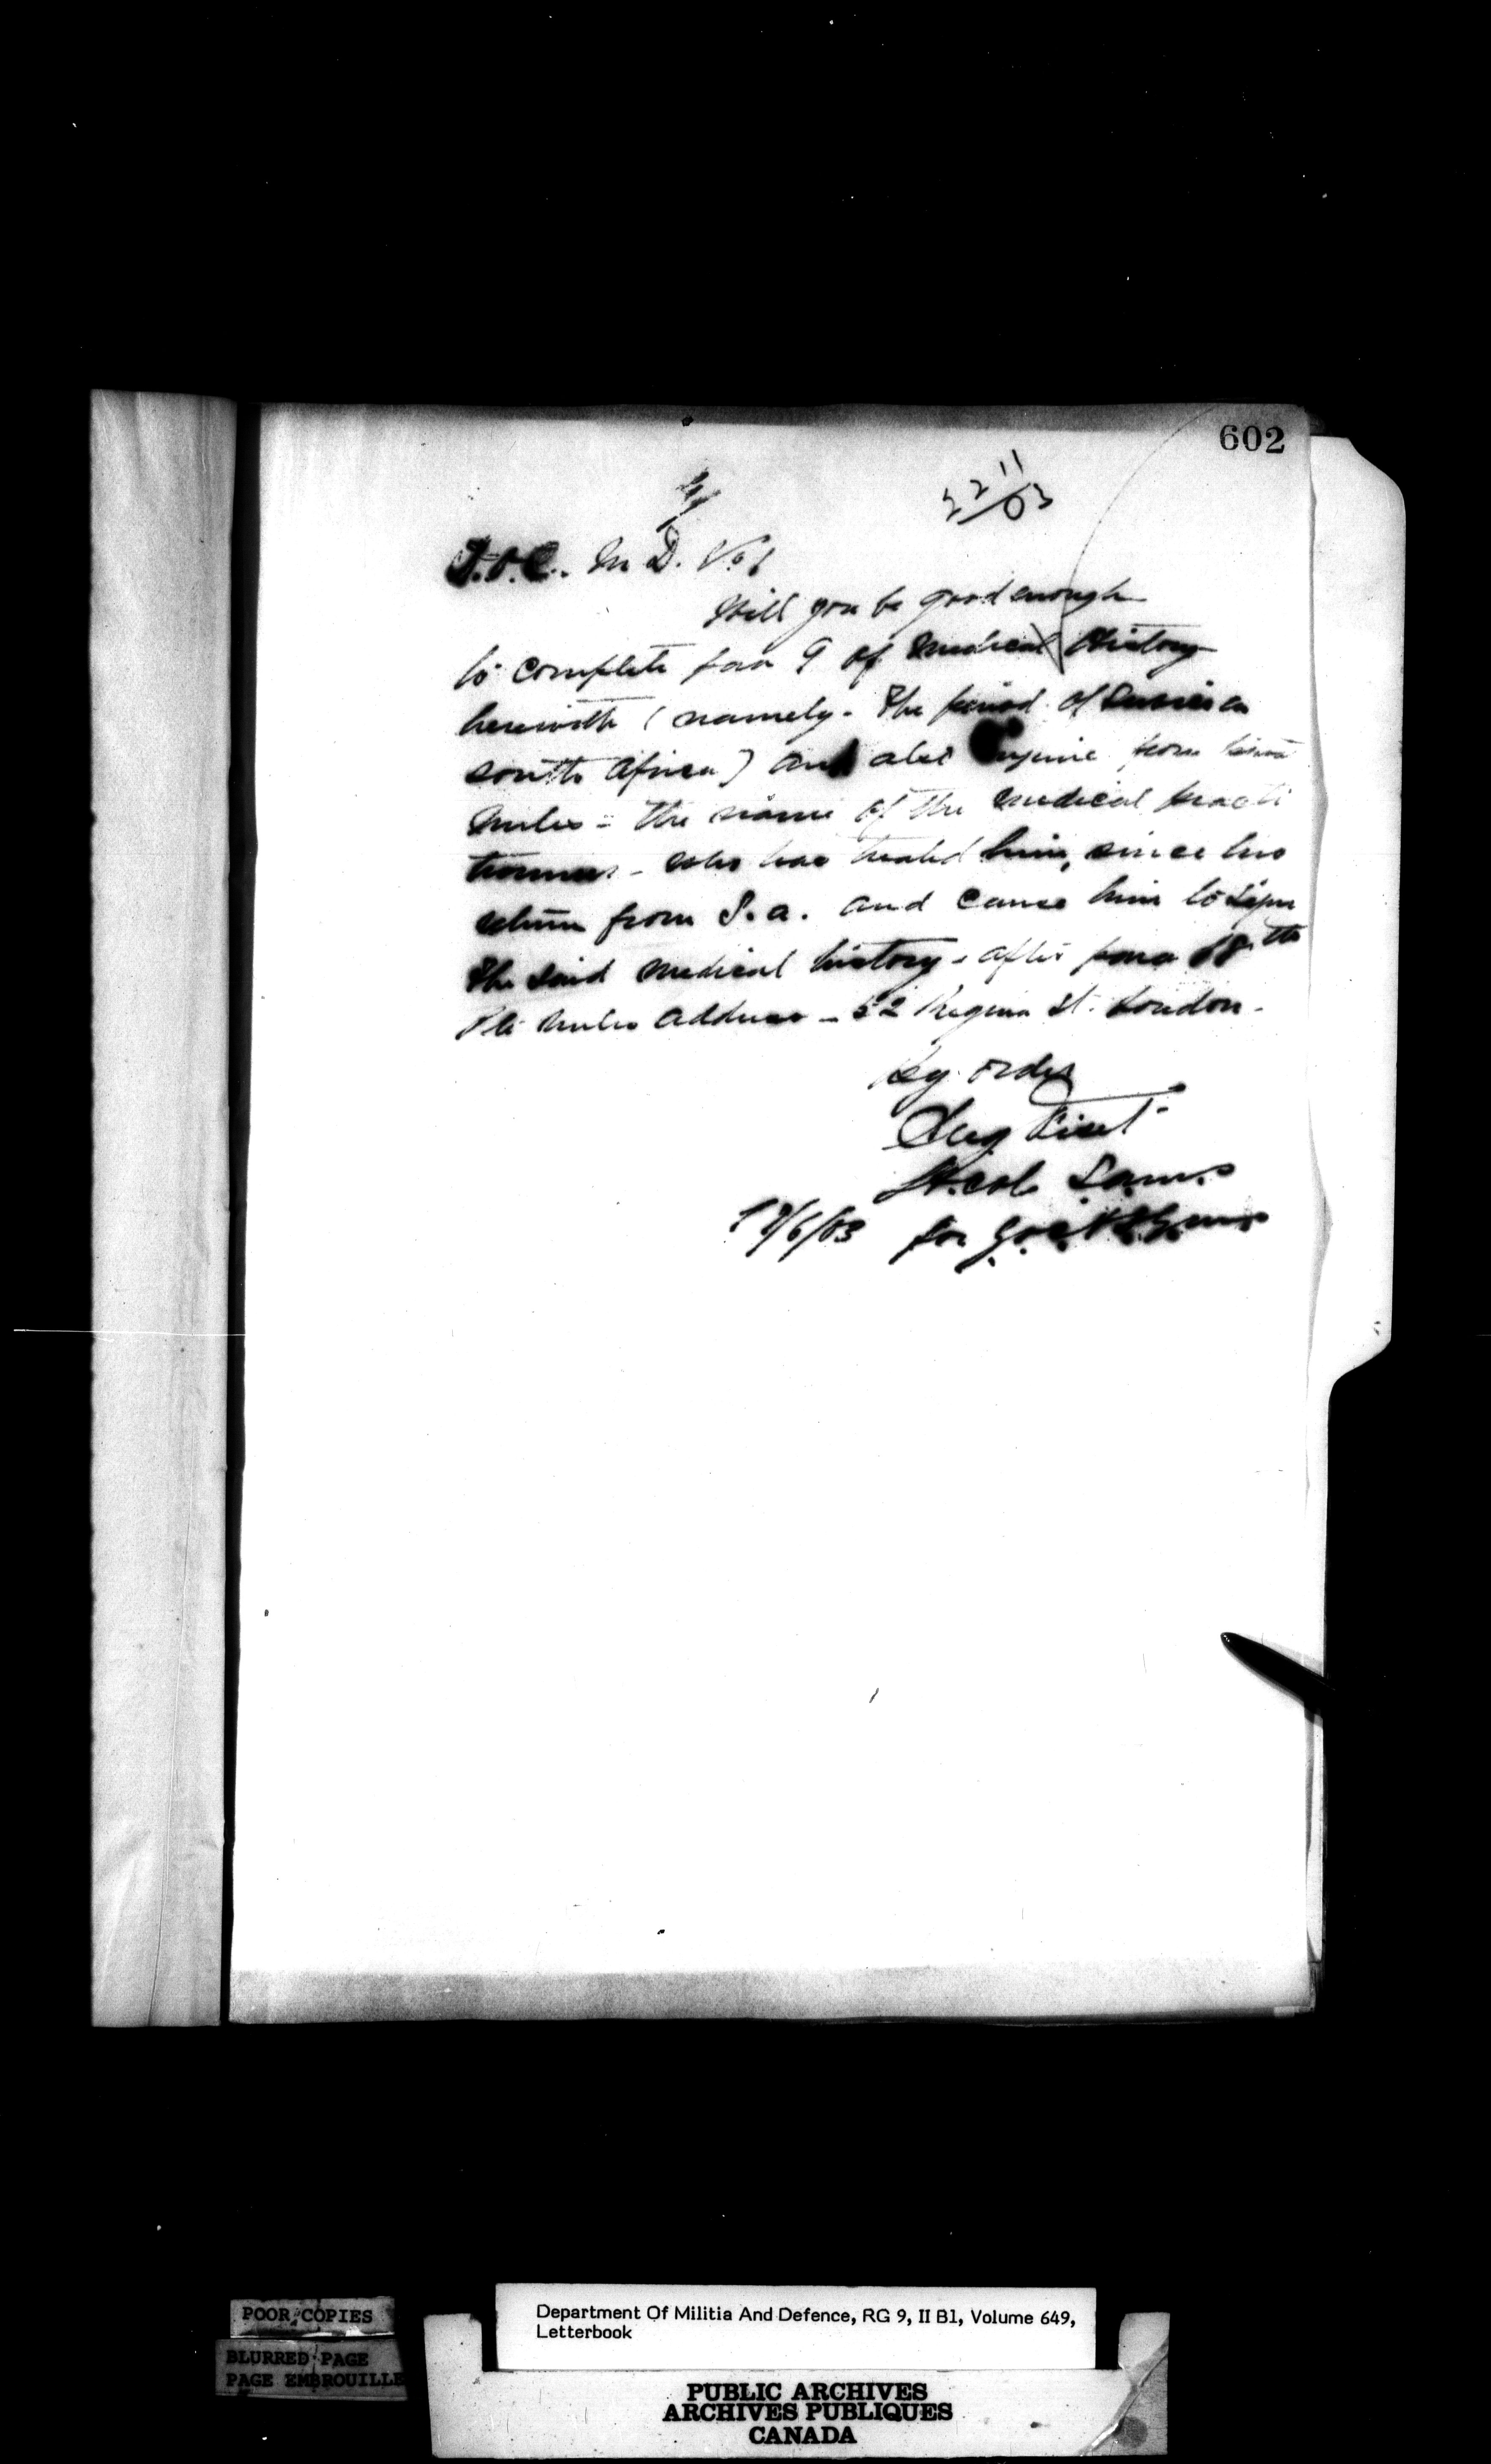 602
22 11/03
D.O.C. M.D. No 1
Will you be good enough
to complete para 9 of Medical History
herewith (namely - the period of Service in
South Africa) and also enquire from
Miles - the name of the medical practi
tioners - who has treated him, since his
return from S.A. and cause him to sign
the said medical history - after para 18th
Pte Miles address - 52 Regina St. London -
By order
Eug Fiset
Lt Col.
17/6/03 for
POOR COPIES
BLURRED PAGE
PAGE EMBROUILLE
Department Of Militia And Defence, RG 9, II B1, Volume 649,
Letterbook
PUBLIC ARCHIVES
ARCHIVES PUBLIQUES
CANADA